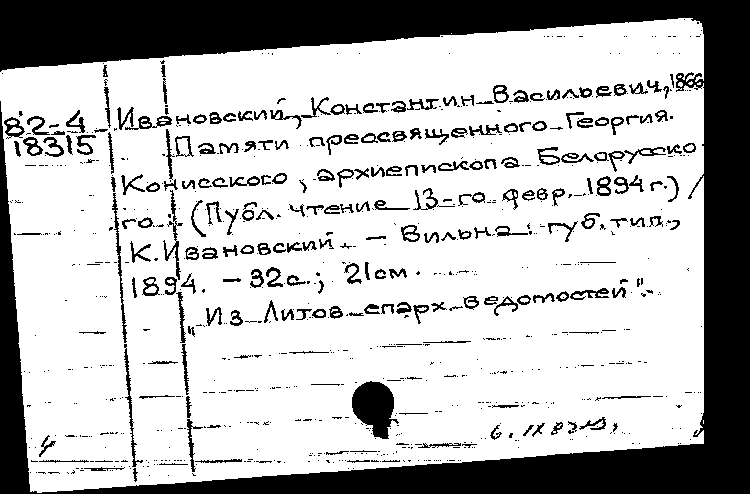 82-4
18315
Ивановский, Константин Васильевич, 1866
Памяти преосвященного Георгия
Конисского, архиепископа Белорусско-
го : (Публ. чтение 13-го февр. 1894 г.) /
К. Ивановский. – Вильна : губ. тип.,
1894. – 32 с. ; 21 см.
"Из Литов. епарх. ведомостей".